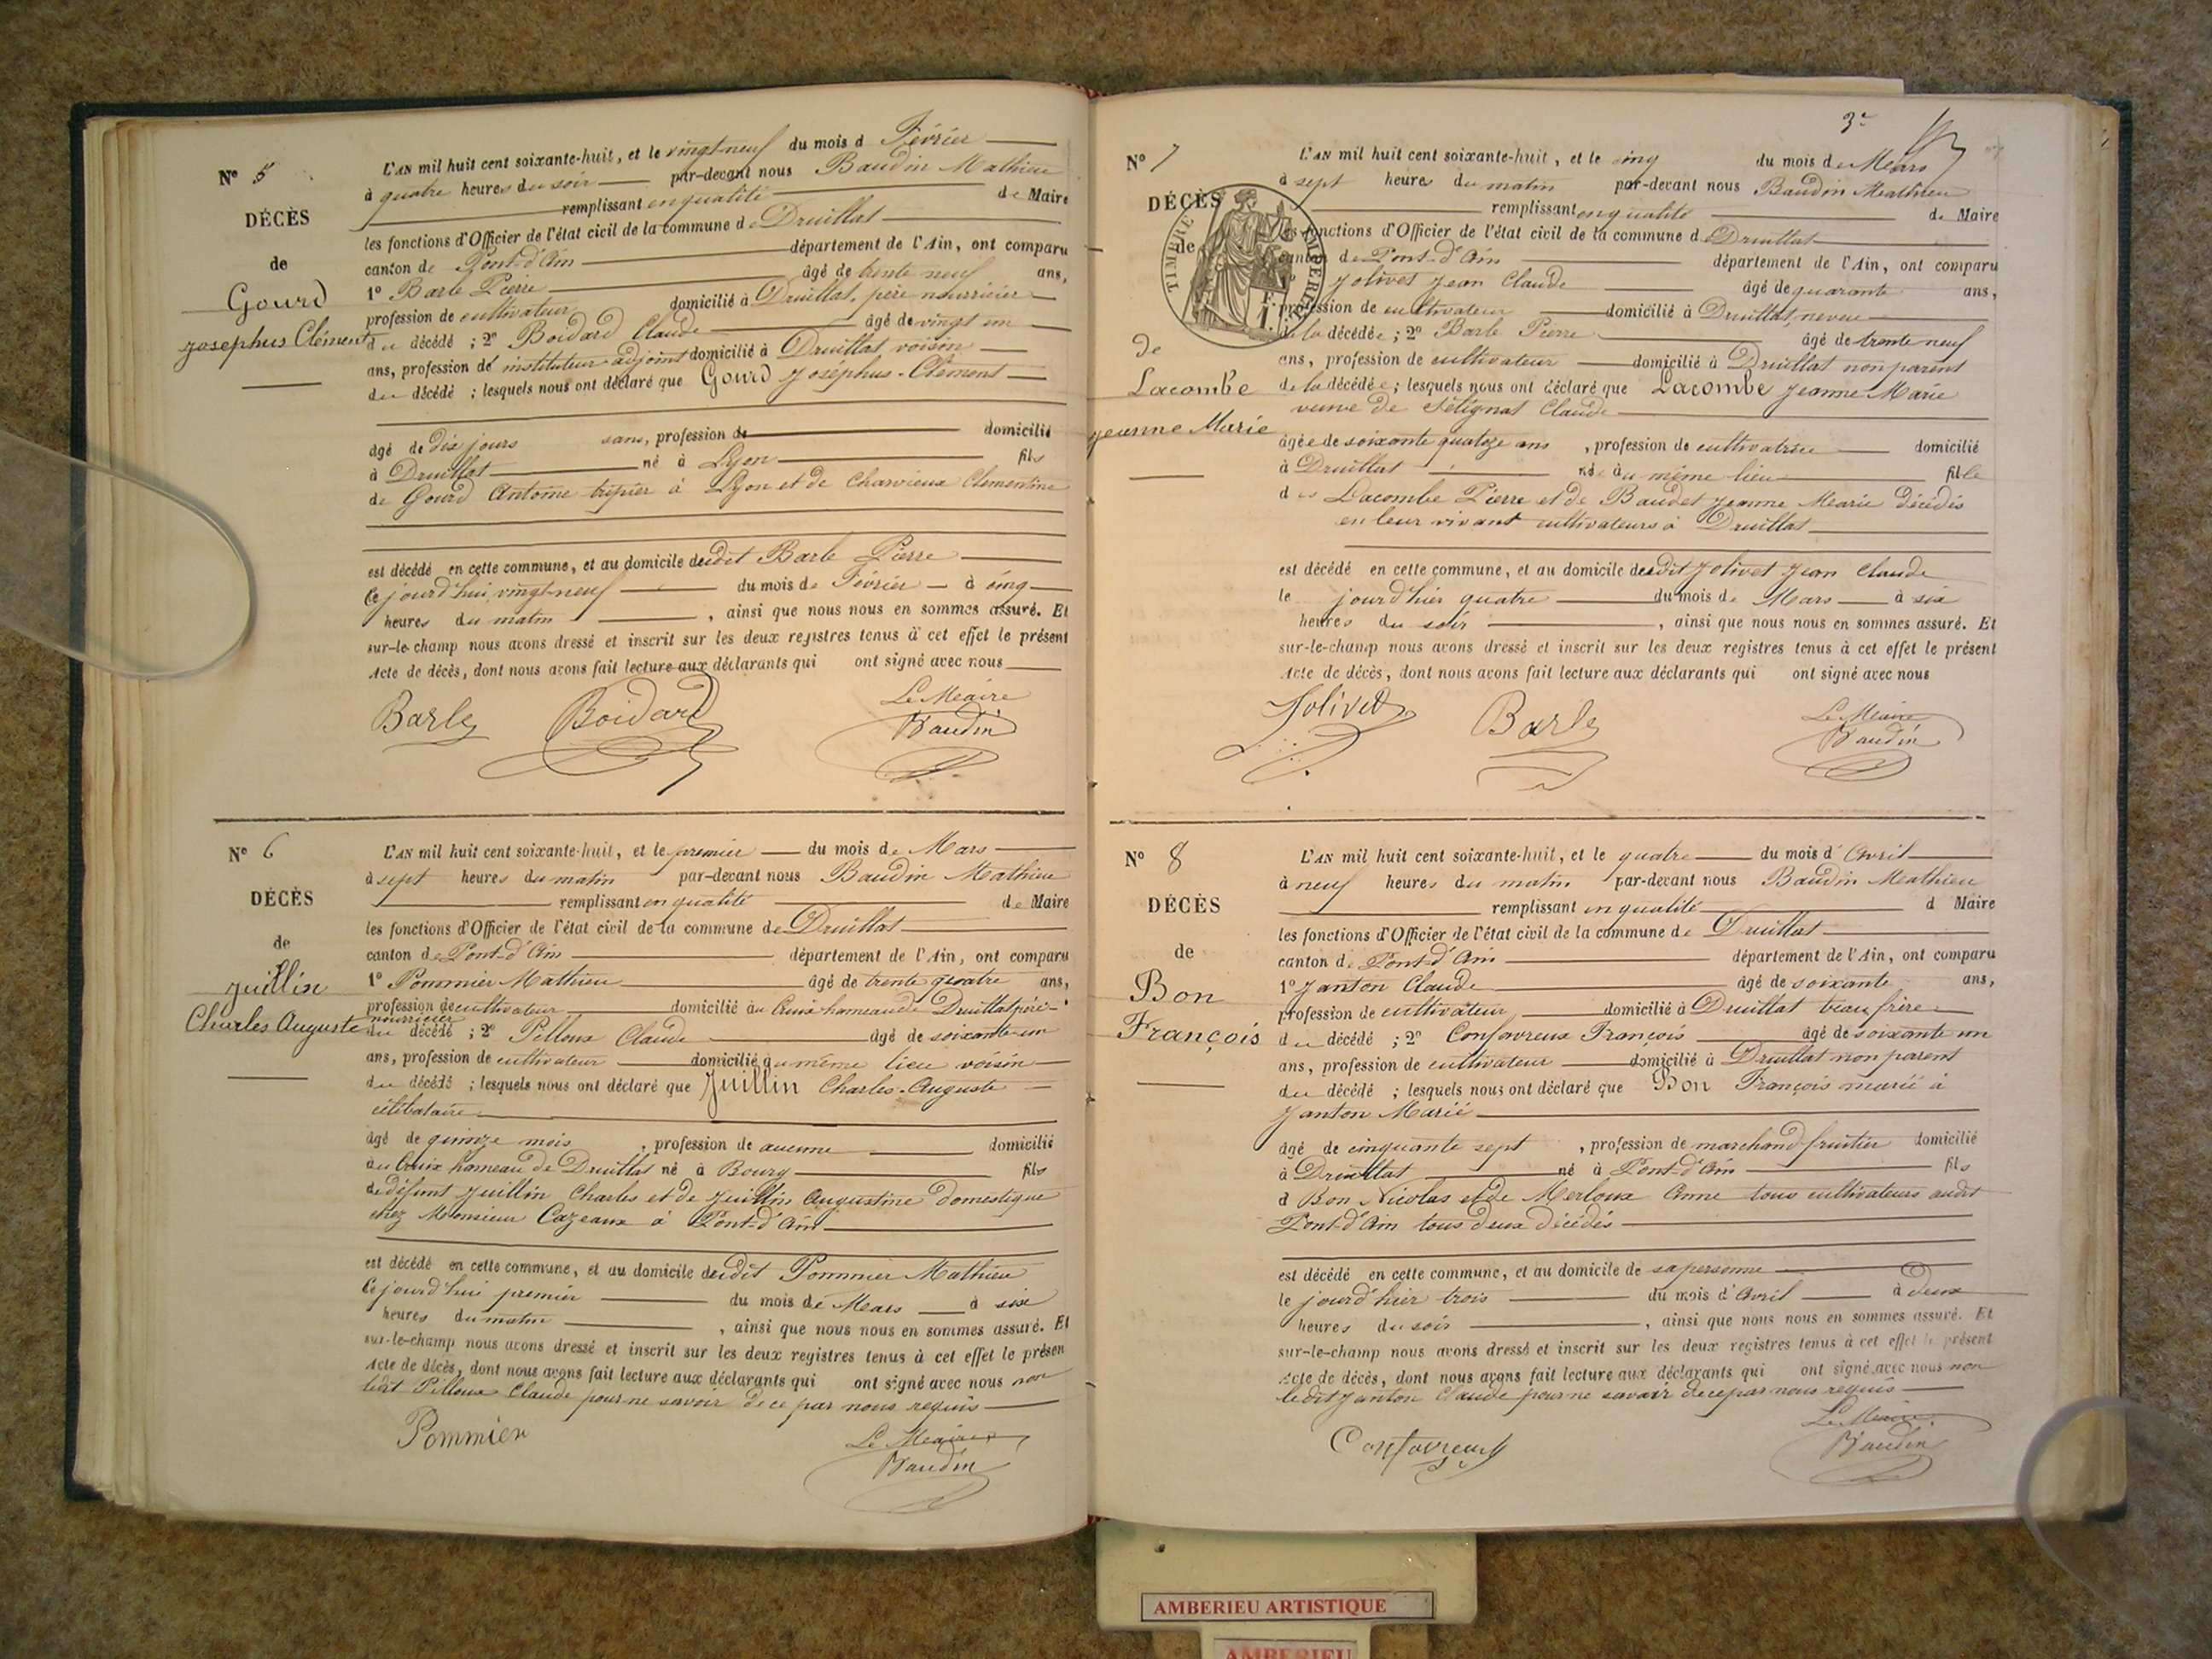 N° 5
DÉCÈS
de
Gourd
Josephus Clément
L'AN mil huit cent soixante-huit, et le vingt-neuf du mois d Février
à quatre heures du soir par-devant nous Baudin Mathieu
remplissant en qualité de Maire
les fonctions d'Officier de l'état civil de la commune de Druillat
canton de Pont-d'Ain département de l'Ain, ont comparu
1° Barle Pierre âgé de trente neuf ans,
profession de cultivateur domicilié à Druillat, père nourricier
du décédé ; 2° Boidard Claude âgé de vingt un
ans, profession de instituteur adjoint domicilié à Druillat, voisin
du décédé ; lesquels nous ont déclaré que Gourd Josephus-Clément
âgé de dix jours sans, profession de domicilié
à Druillat né à Lyon fils
de Gourd Antoine tripier à Lyon et de Charvieux Clémentine
est décédé en cette commune, et au domicile dudit Barle Pierre
le jourd'hui vingt-neuf du mois de Février à cinq
heures du matin , ainsi que nous nous en sommes assuré. Et
sur-le-champ nous avons dressé et inscrit sur les deux registres tenus à cet effet le présent
Acte de décès, dont nous avons fait lecture aux déclarants qui ont signé avec nous
Barle Boidard Le Maire
Baudin
N° 6
DÉCÈS
de
Juillin
Charles Auguste
L'AN mil huit cent soixante-huit, et le premier du mois de Mars
à sept heures du matin par-devant nous Baudin Mathieu
remplissant en qualité de Maire
les fonctions d'Officier de l'état civil de la commune de Druillat
canton de Pont-d'Ain département de l'Ain, ont comparu
1° Pommier Mathieu âgé de trente quatre ans,
profession de cultivateur domicilié au Craix hameau de Druillat père
nourricier
du décédé ; 2° Pilloux Claude âgé de soixante-un
ans, profession de cultivateur domicilié au même lieu voisin
du décédé ; lesquels nous ont déclaré que Juillin Charles-Auguste
célibataire
âgé de quinze mois , profession de aucune domicilié
au Craix hameau de Druillat né à Bourg fils
de défunt Juillin Charles et de Juillin Augustine domestique
chez Monsieur Cazeaux à Pont-d'Ain
est décédé en cette commune, et au domicile dudit Pommier Mathieu
le jourd'hui premier du mois de Mars à six
heures du matin , ainsi que nous nous en sommes assuré. Et
sur-le-champ nous avons dressé et inscrit sur les deux registres tenus à cet effet le présen
Acte de décès, dont nous avons fait lecture aux déclarants qui ont signé avec nous non
ledit Pilloux Claude pour ne savoir de ce par nous requis
Pommier Le Maire
Baudin
3e
N° 7
DÉCÈS
de
TIMBRE IMPÉRIAL
De
Lacombe
Jeanne Marie
L'AN mil huit cent soixante-huit, et le cinq du mois de Mars
à sept heures du matin par-devant nous Baudin Mathieu
remplissant en qualité de Maire
les fonctions d'Officier de l'état civil de la commune de Druillat
canton de Pont-d'Ain département de l'Ain, ont comparu
1° Jolivet Jean Claude âgé de quarante ans,
profession de cultivateur domicilié à Druillat, neveu
de la décédée ; 2° Barle Pierre âgé de trente neuf
ans, profession de cultivateur domicilié à Druillat non parent
de la décédée ; lesquels nous ont déclaré que Lacombe Jeanne Marie
veuve de Sélignat Claude
âgée de soixante quatoze ans , profession de cultivatrice domicilié
à Druillat née au même lieu fille
des Lacombe Pierre et de Baudet Jeanne Marie décédés
en leur vivant cultivateurs à Druillat
est décédé en cette commune, et au domicile dudit Jolivet Jean Claude
le jourd'hier quatre du mois de Mars à six
heures du soir , ainsi que nous nous en sommes assuré. Et
sur-le-champ nous avons dressé et inscrit sur les deux registres tenus à cet effet le présent
Acte de décès, dont nous avons fait lecture aux déclarants qui ont signé avec nous
Jolivet Barle Le Maire
Baudin
N° 8
DÉCÈS
de
Bon
François
L'AN mil huit cent soixante-huit, et le quatre du mois d'Avril
à neuf heures du matin par-devant nous Baudin Mathieu
remplissant en qualité d Maire
les fonctions d'Officier de l'état civil de la commune de Druillat
canton de Pont-d'Ain département de l'Ain, ont comparu
1° Janton Claude âgé de soixante ans,
profession de cultivateur domicilié à Druillat beau frère
du décédé ; 2° Confavreux François âgé de soixante un
ans, profession de cultivateur domicilié à Druillat non parent
du décédé ; lesquels nous ont déclaré que Bon François marié à
Janton Marie
âgé de cinquante sept , profession de marchand fruitier domicilié
à Druillat né à Pont-d'Ain fils
d Bon Nicolas et de Merloux Anne tous cultivateurs audit
Pont-d'Ain tous deux décédés
est décédé en cette commune, et au domicile de sa personne
le jourd'hier trois du mois d'Avril à deux
heures du soir , ainsi que nous nous en sommes assuré. Et
sur-le-champ nous avons dressé et inscrit sur les deux registres tenus à cet effet le présent
Acte de décès, dont nous avons fait lecture aux déclarants qui ont signé avec nous non
ledit Janton Claude pour ne savoir de ce par nous requis
Confavreux Le Maire
Baudin
AMBERIEU ARTISTIQUE
AMBERIEU